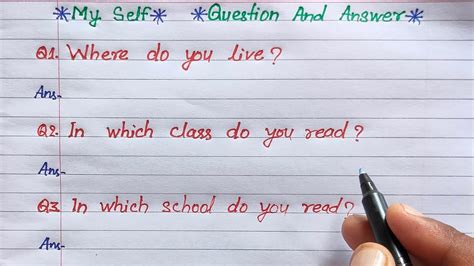 *My Self* *Question And Answer*
Q1. Where do you live?
Ans-
Q2. In which class do you read?
Ans-
Q3. In which school do you read?
Ans-